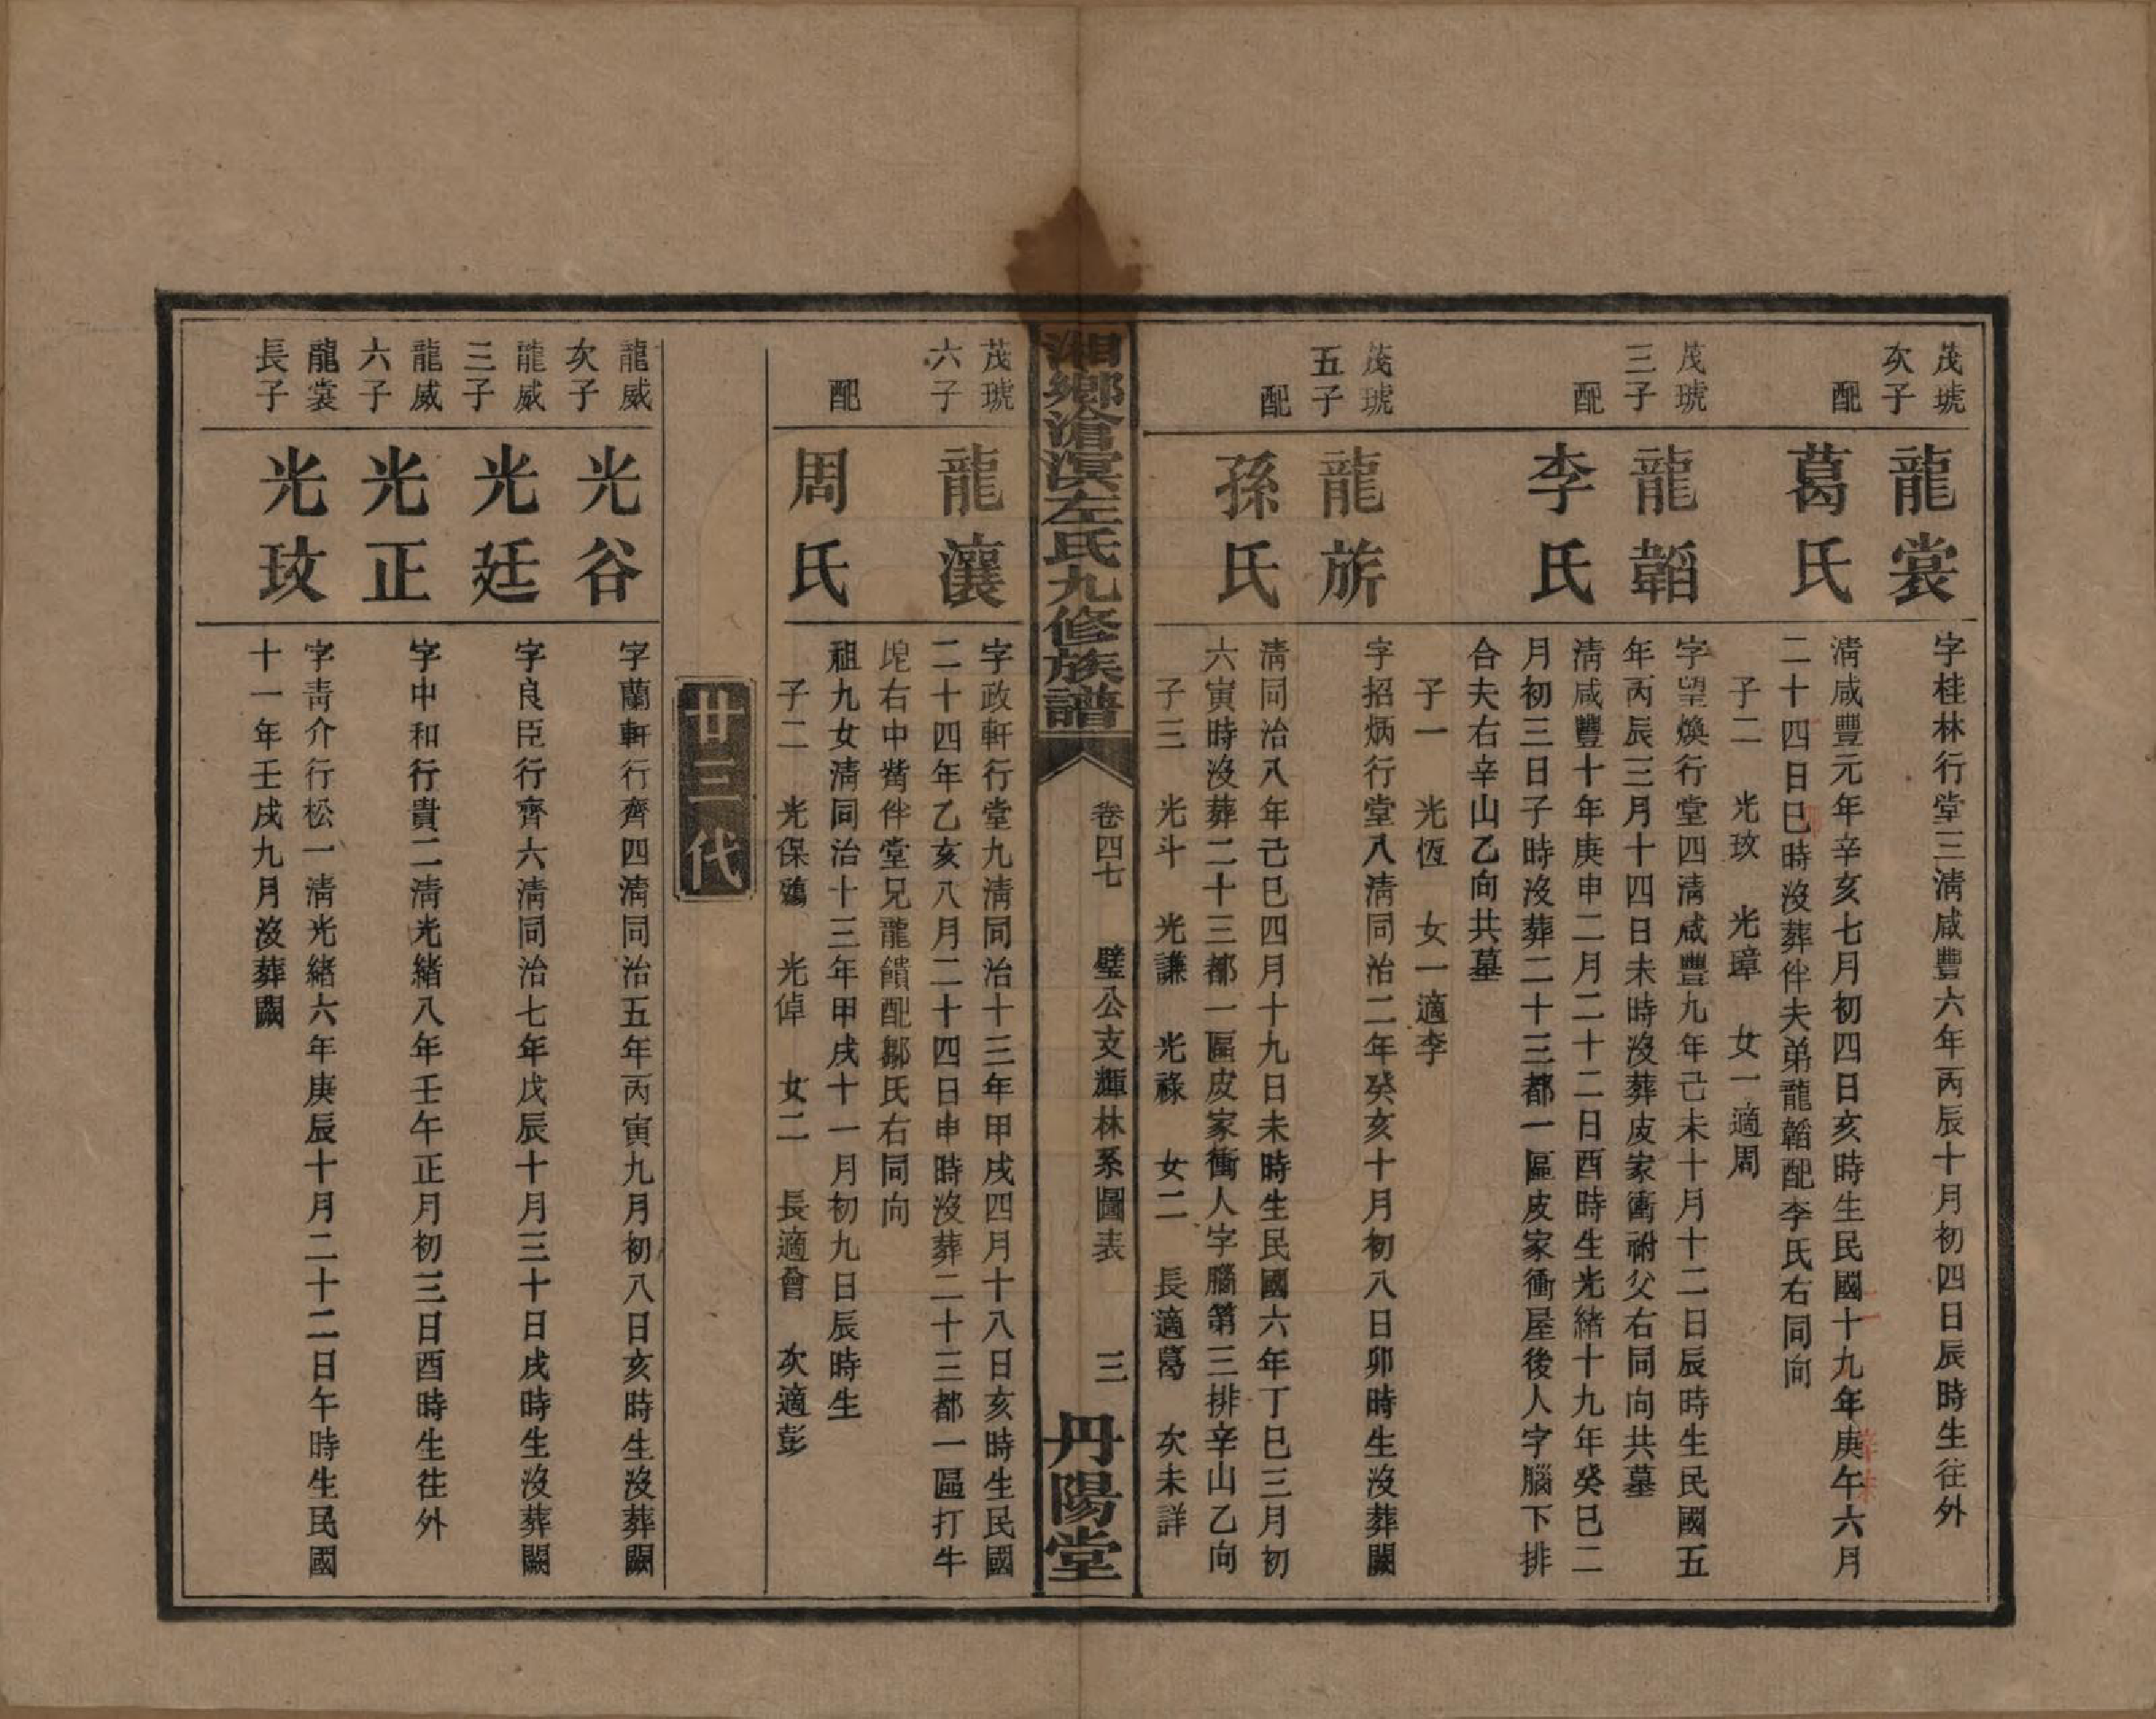 茂琥
次子
龍裳
字桂林行堂三清咸豐六年丙辰十月初四日辰時生往外
配
葛氏
清咸豐元年辛亥七月初四日亥時生民國十九年庚午六月
二十四日巳時沒葬伴夫弟龍韜配李氏右同向
子二　光玟　光璋　女一適周
茂琥
三子
龍韜
字望煥行堂四清咸豐九年己未十月十二日辰時生民國五
年丙辰三月十四日未時沒葬皮家衝祔父右同向共墓
配
李氏
清咸豐十年庚申二月二十二日酉時生光緒十九年癸巳二
月初三日子時沒葬二十三都一區皮家衝屋後人字腦下排
合夫右辛山乙向共墓
子一　光恆　女一適李
茂琥
五子
龍旂
字招炳行堂八清同治二年癸亥十月初八日卯時生沒葬闕
配
孫氏
清同治八年己巳四月十九日未時生民國六年丁巳三月初
六寅時沒葬二十三都一區皮家衝人字腦第三排辛山乙向
子三　光斗　光謙　光祿　女二　長適葛　次未詳
湘鄉滄溟左氏九修族譜
卷四七　璧公支輝林系圖表　三
丹陽堂
茂琥
六子
龍瀼
字政軒行堂九清同治十三年甲戌四月十八日亥時生民國
二十四年乙亥八月二十四日申時沒葬二十三都一區打牛
垸右中嘴伴堂兄龍饋配鄒氏右同向
配
周氏
祖九女清同治十三年甲戌十一月初九日辰時生
子二　光保殤　光倬　女二　長適曾　次適彭
廿三代
龍威
次子
光谷
字蘭軒行齊四清同治五年丙寅九月初八日亥時生沒葬闕
龍威
三子
光廷
字良臣行齊六清同治七年戊辰十月三十日戌時生沒葬闕
龍威
六子
光正
字中和行貴二清光緒八年壬午正月初三日酉時生往外
龍裳
長子
光玟
字靑介行松一清光緒六年庚辰十月二十二日午時生民國
十一年壬戌九月沒葬闕